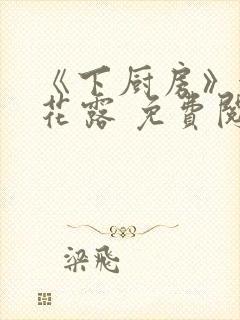 《下厨房》
花露 免費閱
梁飛